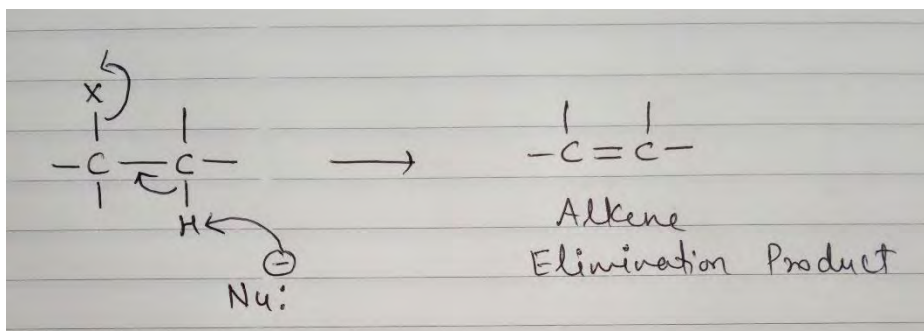 X
— C — C — ⟶ — C = C —
H
⊖
Nu:
Alkene
Elimination Product